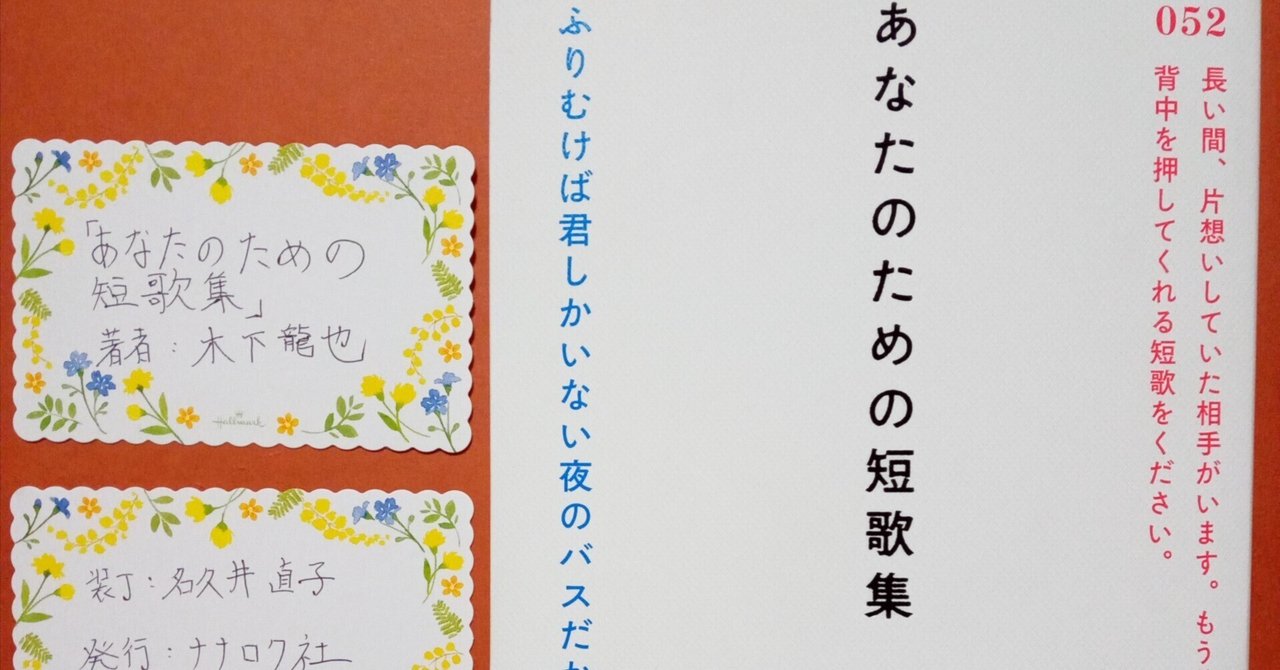 052
長い間、片想いしていた相手がいます。もう
背中を押してくれる短歌をください。
あなたのための短歌集
ふりむけば君しかいない夜のバスだ
「あなたのための
短歌集」
著者：木下龍也
Hallmark
装丁：名久井直子
発行：ナナロク社